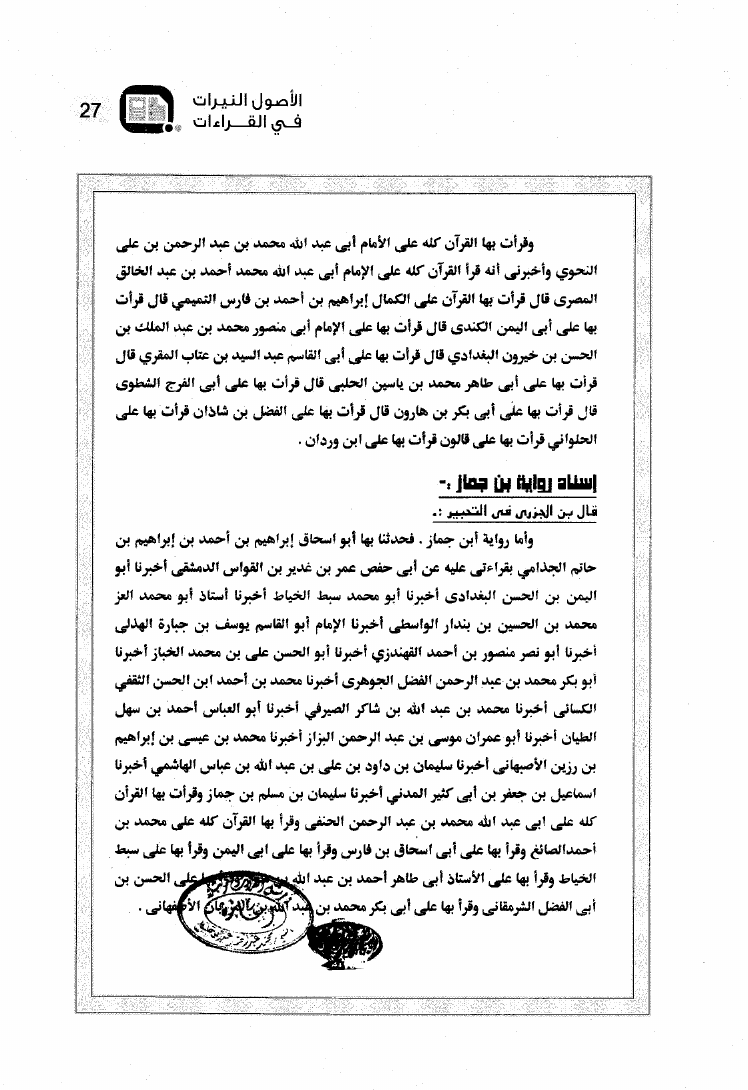 الأصول النيرات
في القراءات
27
وقرأت بها القرآن كله على الأمام أبي عبد الله محمد بن عبد الرحمن بن على
النحوي وأخبرنى أنه قرأ القرآن كله على الإمام أبي عبد الله محمد أحمد بن عبد الخالق
المصرى قال قرأت بها القرآن على الكمال إبراهيم بن أحمد بن فارس التميمي قال قرأت
بها على أبى اليمن الكندى قال قرأت بها على الإمام أبى منصور محمد بن عبد الملك بن
الحسن بن خيرون البغدادي قال قرأت بها على أبى القاسم عبد السيد بن عتاب المقري قال
قرأت بها على أبي طاهر محمد بن ياسين الحلبى قال قرأت بها على أبى الفرج الشطوى
قال قرأت بها على أبى بكر بن هارون قال قرأت بها على الفضل بن شاذان قرأت بها على
الحلواني قرأت بها على قالون قرأت بها على ابن وردان .
إسناد رواية بن جماز :-
قال بن الجزرى فى التحبير :.
وأما رواية أبن جماز . فحدثنا بها أبو اسحاق إبراهيم بن أحمد بن إبراهيم بن
حاتم الجذامي بقراءتى عليه عن أبى حفص عمر بن غدير بن القواس الدمشقى أخبرنا أبو
اليمن بن الحسن البغدادى أخبرنا أبو محمد سبط الخياط أخبرنا أستاذ أبو محمد العز
محمد بن الحسين بن بندار الواسطى أخبرنا الإمام أبو القاسم يوسف بن جبارة الهذلى
أخبرنا أبو نصر منصور بن أحمد القهندزي أخبرنا أبو الحسن على بن محمد الخباز أخبرنا
أبو بكر محمد بن عبد الرحمن الفضل الجوهرى أخبرنا محمد بن أحمد ابن الحسن الثقفي
الكسائى أخبرنا محمد بن عبد الله بن شاكر الصيرفي أخبرنا أبو العباس أحمد بن سهل
الطيان أخبرنا أبو عمران موسى بن عبد الرحمن البزاز أخبرنا محمد بن عيسى بن إبراهيم
بن رزين الأصبهانى أخبرنا سليمان بن داود بن على بن عبد الله بن عباس الهاشمي أخبرنا
اسماعيل بن جعفر بن أبى كثير المدني أخبرنا سليمان بن مسلم بن جماز وقرأت بها القرأن
كله على ابى عبد الله محمد بن عبد الرحمن الحنفى وقرأ بها القرآن كله على محمد بن
أحمدالصائغ وقرأ بها على أبى اسحاق بن فارس وقرأ بها على ابى اليمن وقرأ بها على سبط
الخياط وقرأ بها على الأستاذ أبى طاهر أحمد بن عبد الله على الحسن بن
أبى الفضل الشرمقانى وقرأ بها على أبى بكر محمد بن عبد الله بن الأصفهانى .